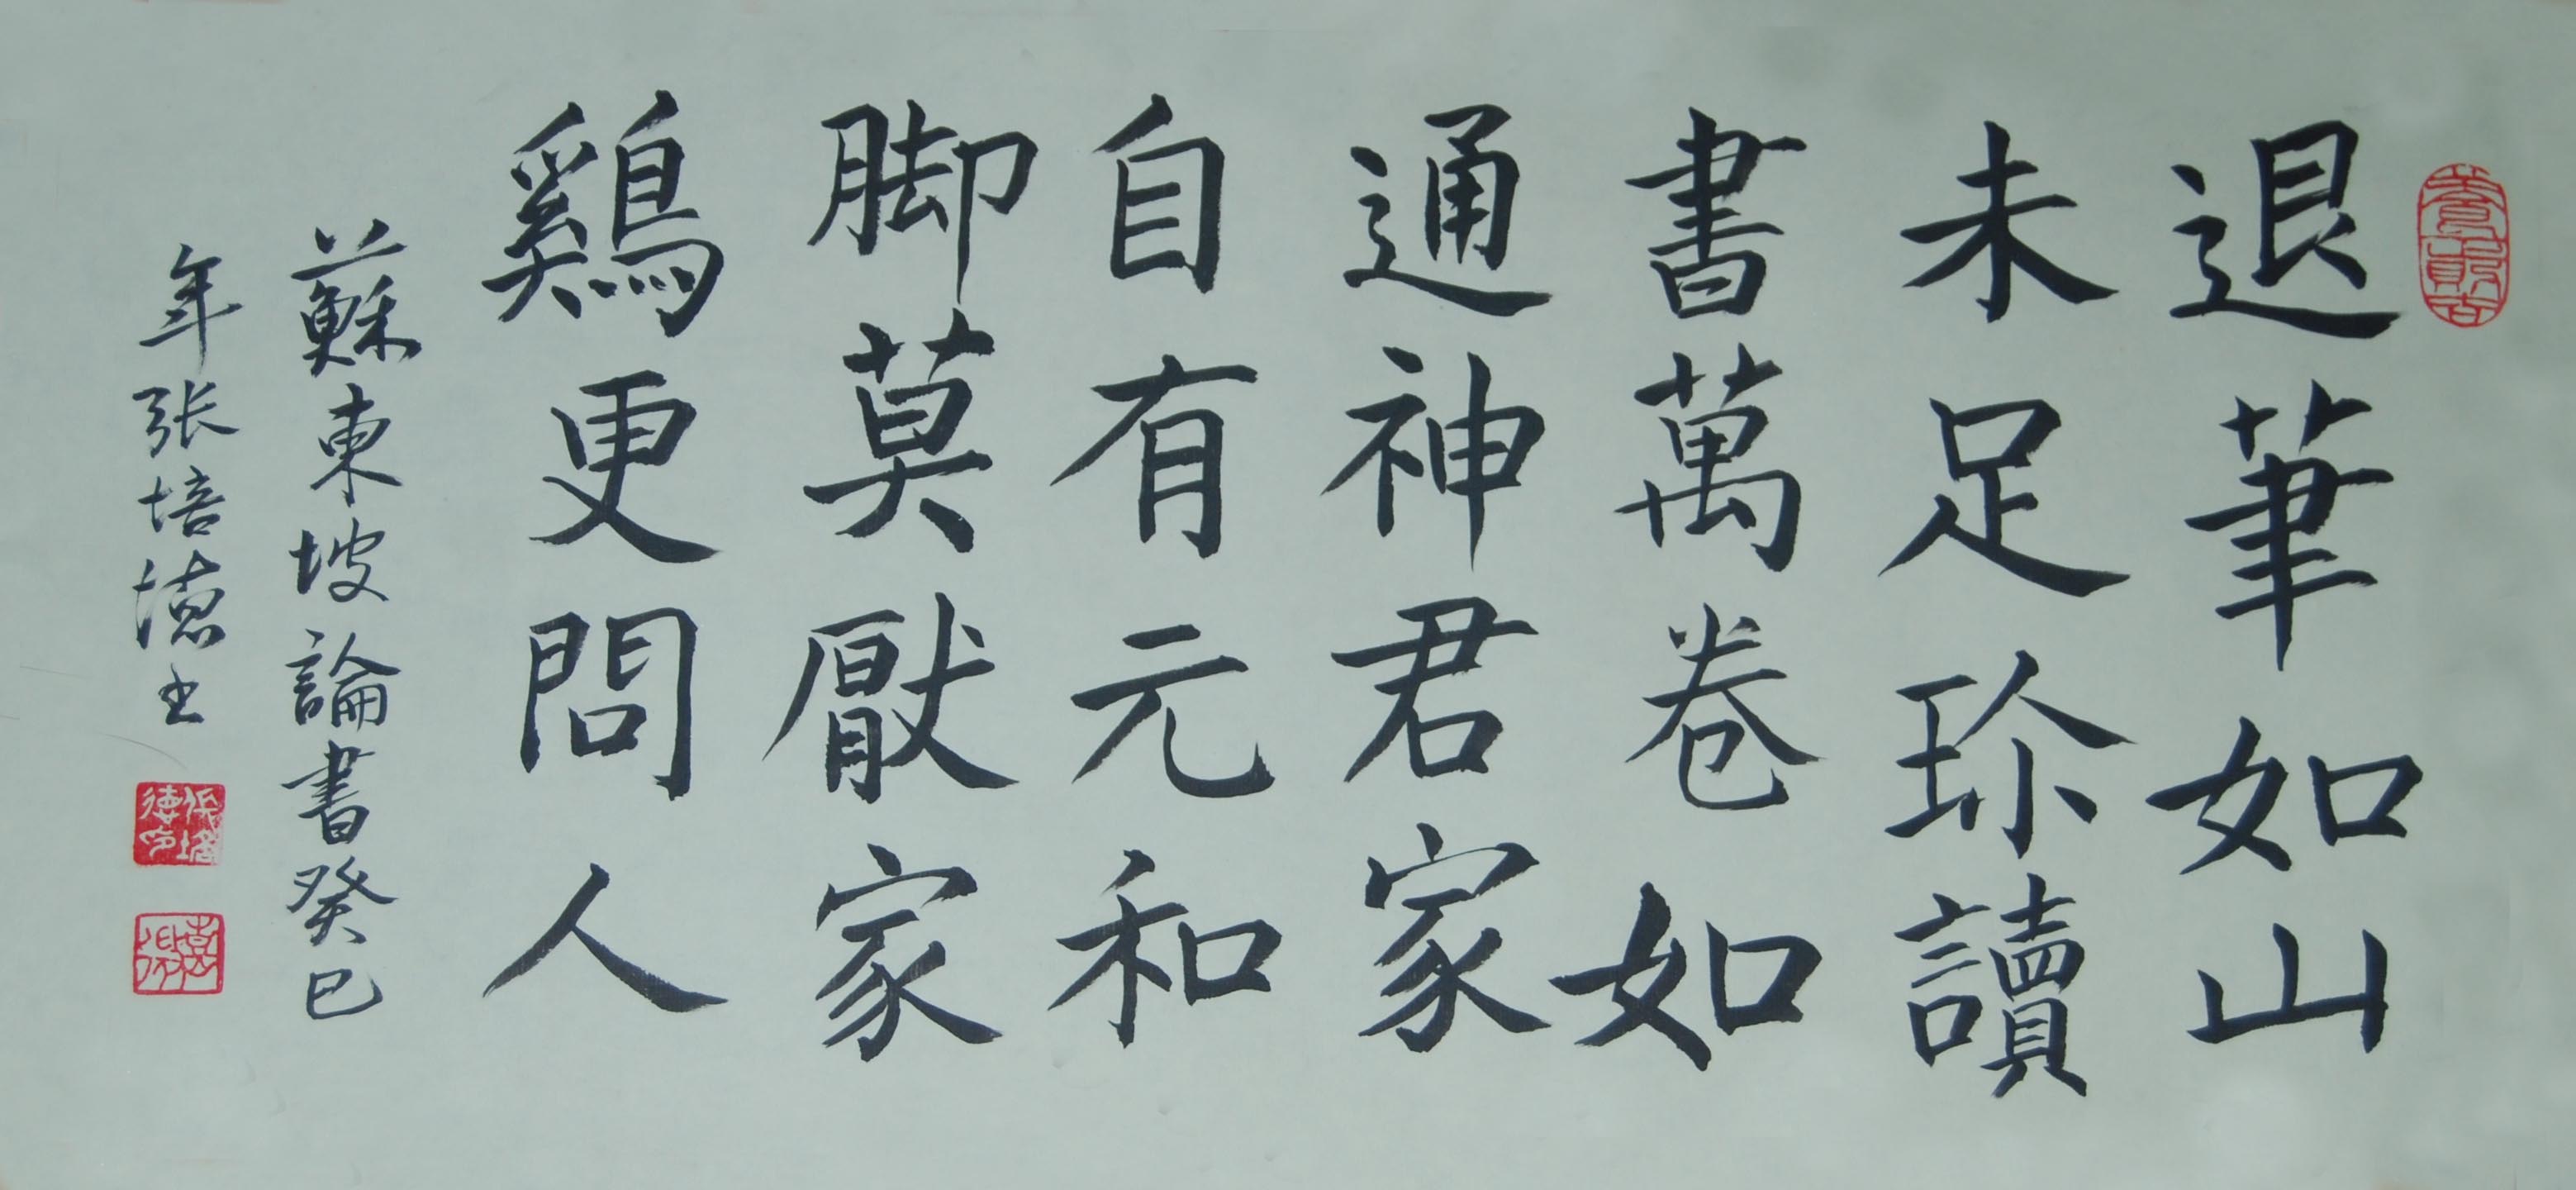 退筆如山
未足珍讀
書萬卷如
通神君家
自有元和
脚莫厭家
鷄更問人
蘇東坡論書癸巳
年張培德书